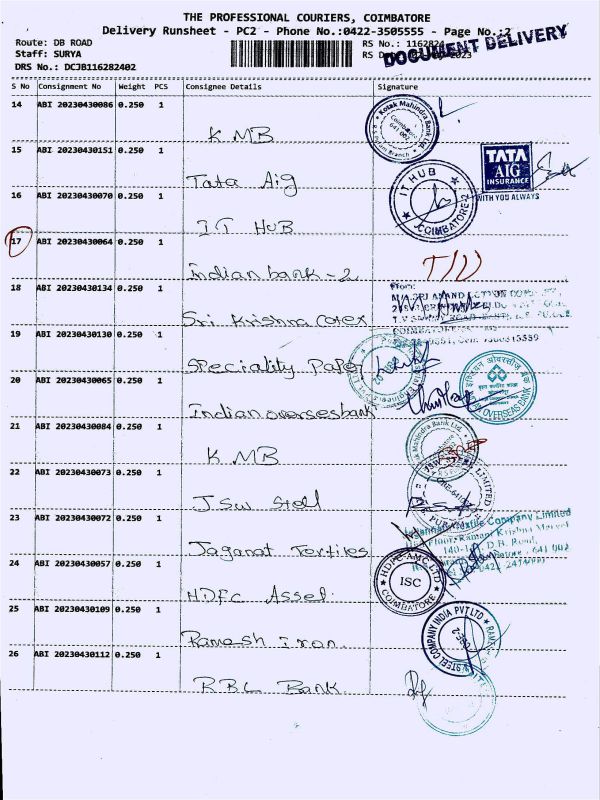 THE PROFESSIONAL COURIERS, COIMBATORE
Delivery Runsheet - PC2 - Phone No.:0422-3505555 - Page No.:2
DOCUMENT DELIVERY
Route: DB ROAD
RS No.: 1162824
Staff: SURYA
RS D 2023
DRS No.: DCJB116282402
S No Consignment No Weight PCS Consignee Details Signature
14 ABI 20230430086 0.250 1
KMB
Kotak Mahindra Bank Ltd.
15 ABI 20230430151 0.250 1
Tata Aig
TATA
AIG
INSURANCE
WITH YOU ALWAYS
16 ABI 20230430070 0.250 1
IT HUB
IT HUB
COIMBATORE-2
17 ABI 20230430064 0.250 1
Indian bank - 2
18 ABI 20230430134 0.250 1
From:
Sri Krishna
19 ABI 20230430130 0.250 1
Speciality Paper
20 ABI 20230430065 0.250 1
Indian overses bank
OVERSEAS BANK
21 ABI 20230430084 0.250 1
KMB
Mahindra Bank Ltd.
22 ABI 20230430073 0.250 1
JSW Stell
JSW
LIMITED
23 ABI 20230430072 0.250 1
Jaganat Textiles
Textile Company Limited
24 ABI 20230430057 0.250 1
HDFC Asset
HDFC AMC LTD
ISC
COIMBATORE
25 ABI 20230430109 0.250 1
Ramesh Iron
STEEL COMPANY INDIA PVT LTD
26 ABI 20230430112 0.250 1
RBL Bank